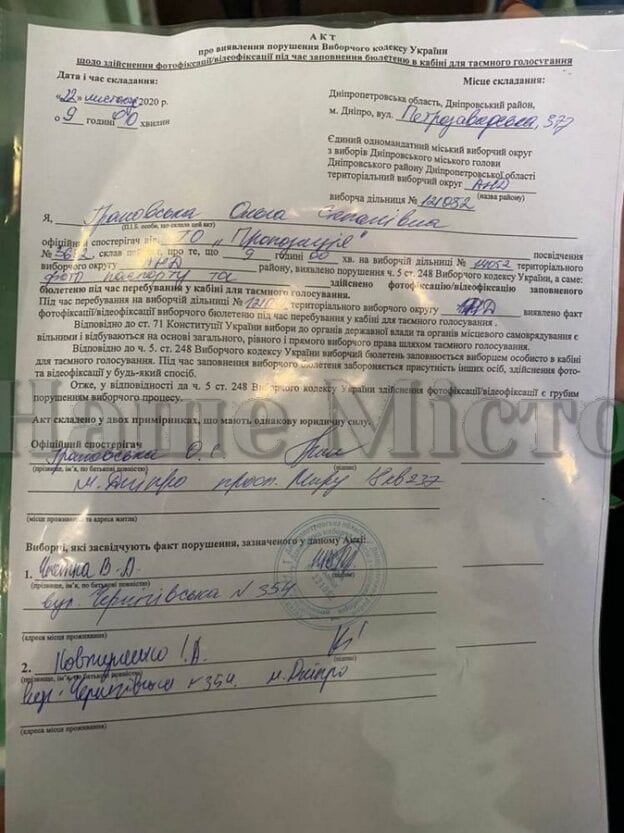 А К Т
про виявлення порушення Виборчого кодексу України
щодо здійснення фотофіксації/відеофіксації під час заповнення бюлетеню в кабіні для таємного голосування
Дата і час складання:
«22» листопада 2020 р.
о 9 годині 00 хвилин
Місце складання:
Дніпропетровська область, Дніпровський район,
м. Дніпро, вул. Петрозаводська, 377
Єдиний одномандатний міський виборчий округ
з виборів Дніпровського міського голови
Дніпровського району Дніпропетровської області
територіальний виборчий округ АНД
(назва району)
виборча дільниця № 121082
Я, Грановська Ольга
(П.І.Б. особи, що склала цей акт)
офіційний спостерігач від ТО "Пропозиція" посвідчення
№ 3652, склав про те, що 9 годині 00 хв. на виборчій дільниці № територіального
виборчого округу АНД району, виявлено порушення ч. 5 ст. 248 Виборчого кодексу України, а саме:
фото паспорту та здійснено фотофіксацію/відеофіксацію заповненого
бюлетеню під час перебування у кабіні для таємного голосування.
Під час перебування на виборчій дільниці № територіального виборчого округу АНД виявлено факт
фотофіксації/відеофіксації виборчого бюлетеню під час перебування у кабіні для таємного голосування .
Відповідно до ст. 71 Конституції України вибори до органів державної влади та органів місцевого самоврядування є
вільними і відбуваються на основі загального, рівного і прямого виборчого права шляхом таємного голосування.
Відповідно ч. 5 ст. 248 Виборчого кодексу України виборчий бюлетень заповнюється виборцем особисто в кабіні
для таємного голосування. Під час заповнення виборчого бюлетеня забороняється присутність інших осіб, здійснення фото-
та відеофіксації у будь-який спосіб.
Отже, у відповідності да ч. 5 ст. 248 Виборчого кодексу України здійснення фотофіксації/відеофіксації є грубим
порушенням виборчого процесу.
Наше Місто
Акт складено у двох примірниках, що мають однакову юридичну силу.
Офіційний спостерігач
Грановська О.
(прізвище, ім'я, по батькові повністю)
(підпис)
м. Дніпро просп. Миру 18 кв 237
(місце проживання та адреса житла)
Виборці, які засвідчують факт порушення, зазначеного у даному Акті:
1. В. А.
(прізвище, ім'я, по батькові повністю)
(підпис)
вул. Чернігівська N 354
(адреса місця проживання)
2. І. А.
(прізвище, ім'я, по батькові повністю)
(підпис)
вул. Чернігівська 354. м. Дніпро
(адреса місця проживання)